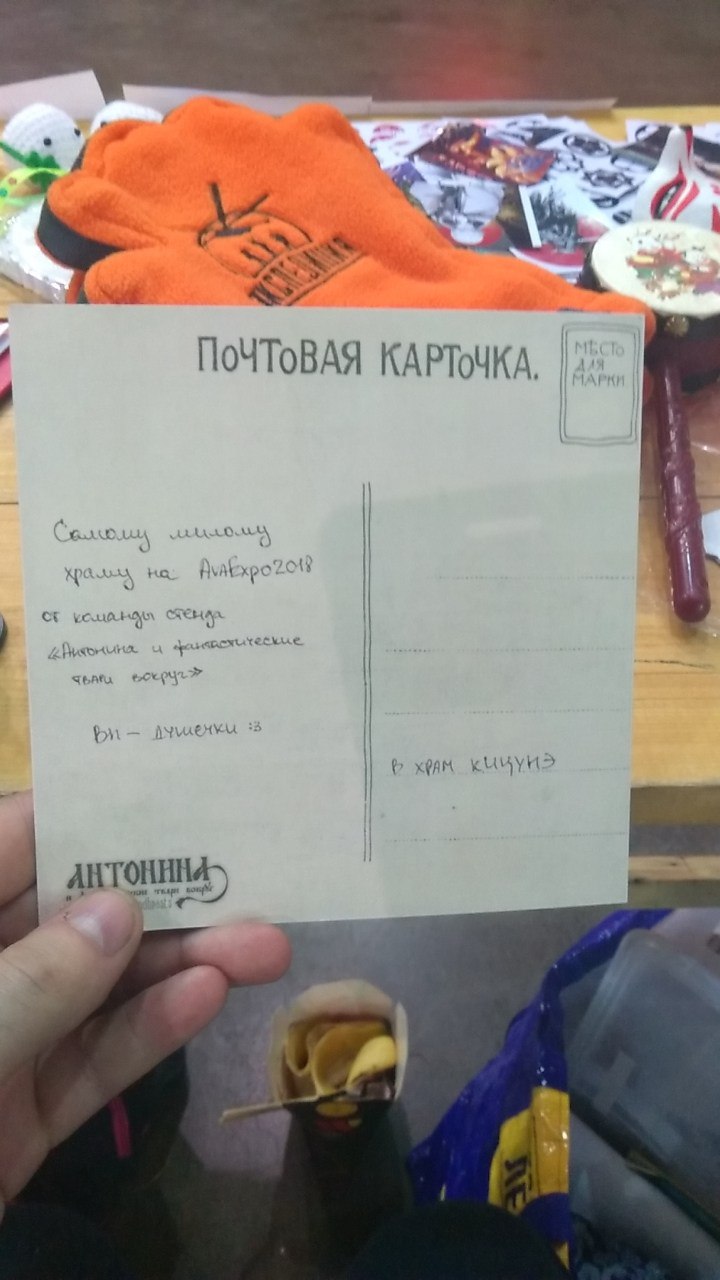 ЭКСПЕДИЦИЯ
ПОЧТОВАЯ КАРТОЧКА.
МѢСТО
ДЛЯ
МАРКИ
Самому милому
храму на AvaExpo2018
от команды стенда
«Антонина и фантастические
твари вокруг»
Вы – душечки :3
В ХРАМ КИЦУНЭ
АНТОНИНА
твари вокруг